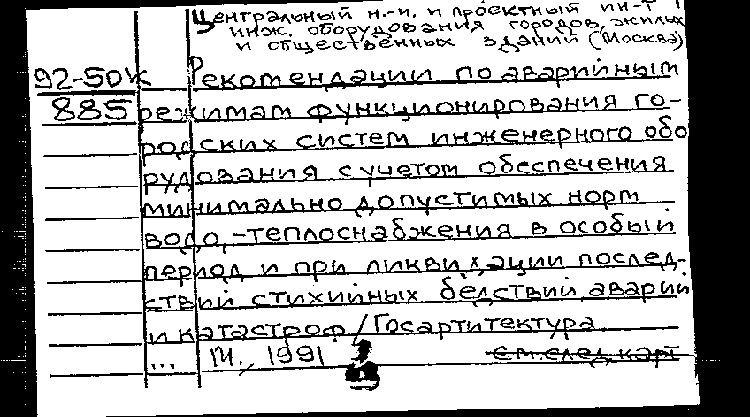 Центральный н.-и. и проектный ин-т
инж. оборудования городов, жилых
и общественных зданий (Москва)
92-50к Рекомендации по аварийным
885 режимам функционирования го-
родских систем инженерного обо
рудования с учетом обеспечения
минимально допустимых норм
водо,-теплоснабжения в особый
период и при ликвидации послед-
ствий стихийных бедствий, аварий
и катастроф / Госартитектура.
... М., 1991
см. след. карт